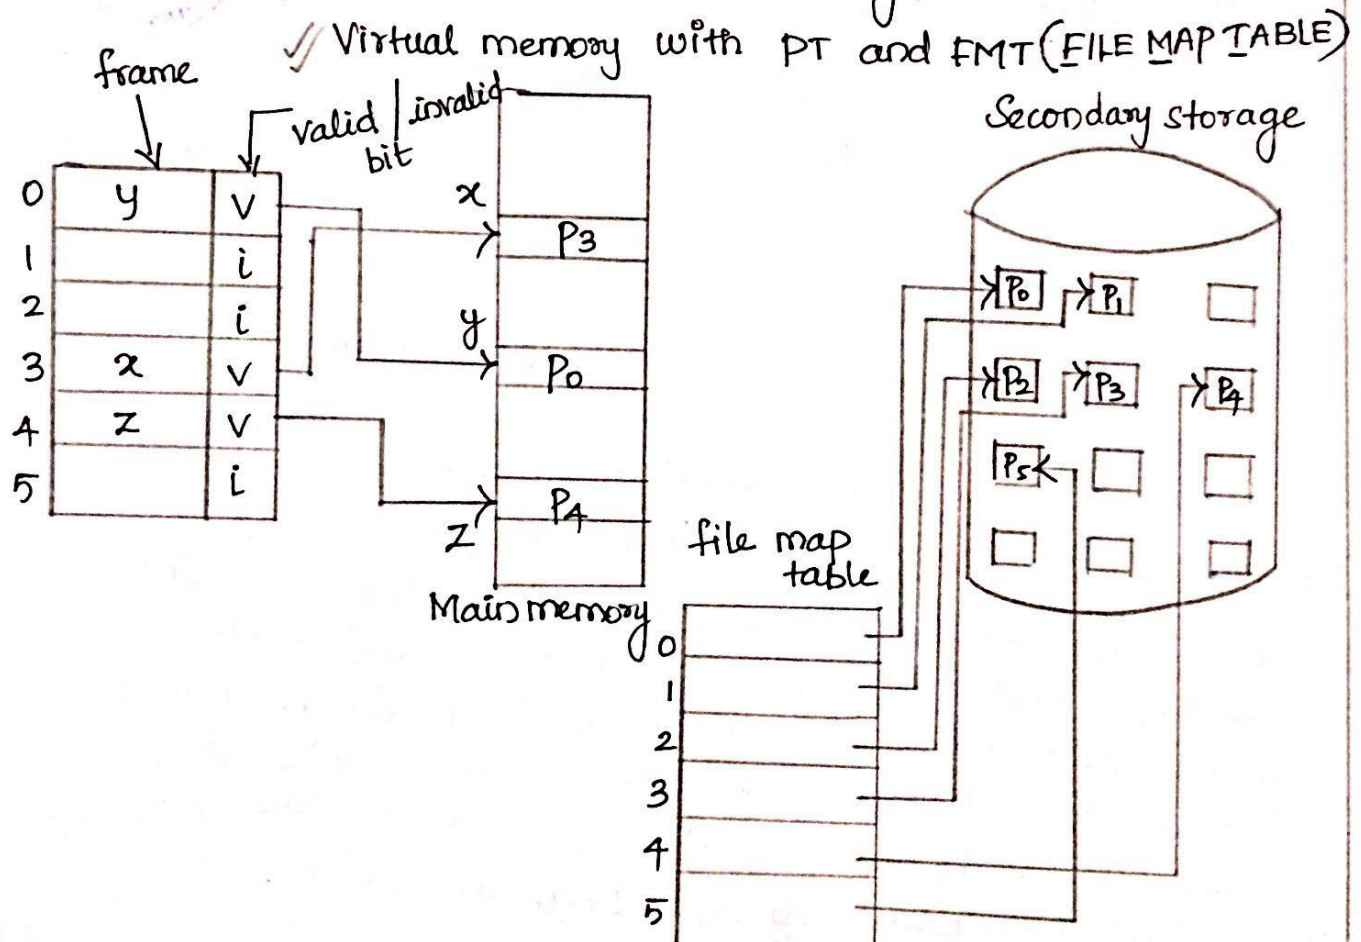 Virtual memory with PT and FMT (FILE MAP TABLE)
frame
valid / invalid
bit
Secondary storage
0 y v
1 i
2 i
3 x v
4 z v
5 i
x
P3
y
P0
P4
z
Main memory
P0 P1
P2 P3 P4
P5
file map
table
0
1
2
3
4
5